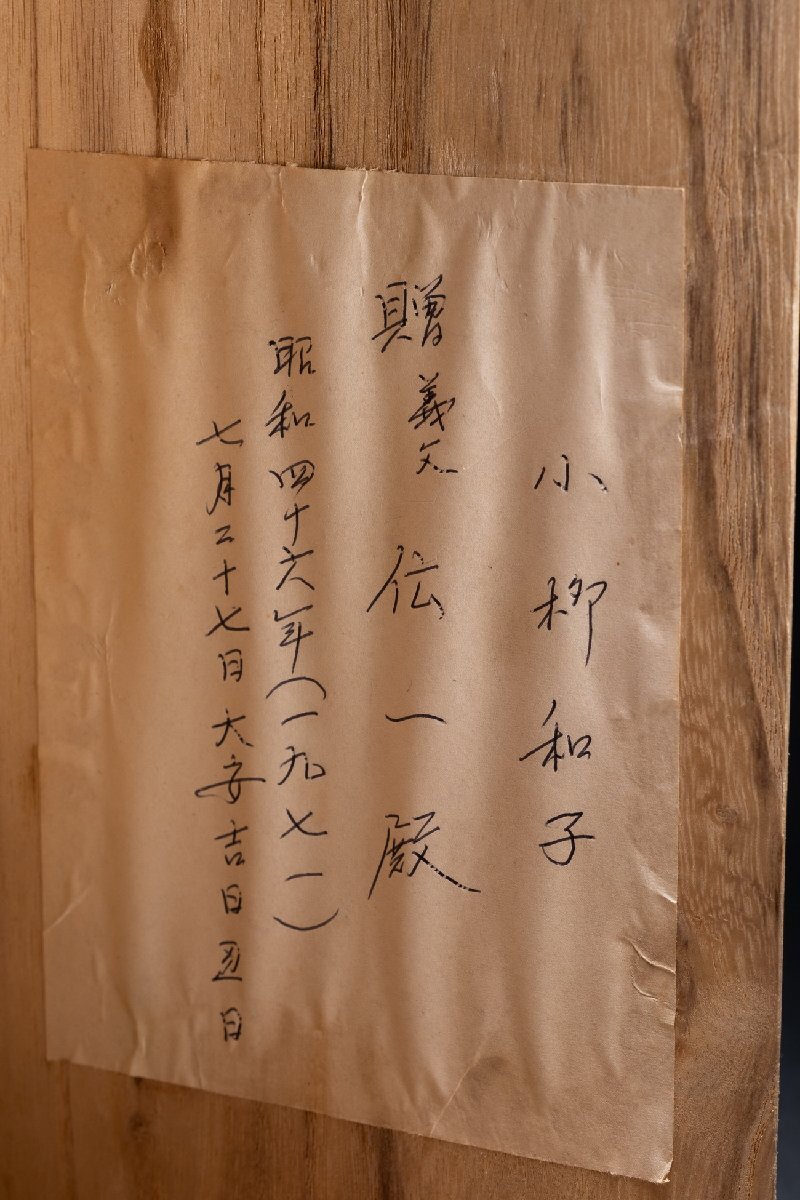 小柳和子
贈 義父 伝一殿
昭和四十六年（一九七一）
七月二十七日大安吉日丑日